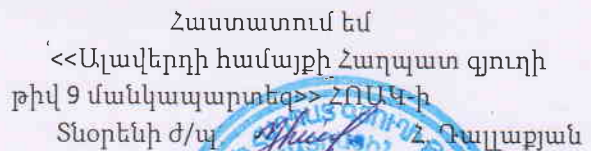 Հաստատում եմ
<<Ալավերդի համայքի Հաղպատ գյուղի
թիվ 9 մանկապարտեզ>> ՀՈԱԿ-ի
Տնօրենի ժ/պ Հ. Դալլաքյան